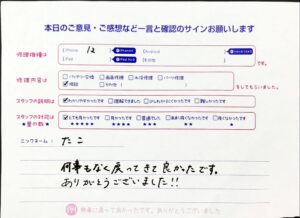 本日のご意見・ご感想など一言と確認のサインお願いします
修理機種は
iPhone 12
iPad
Android
その他
です。
修理内容は
バッテリー交換 画面修理 水没修理 パーツ修理
相談 その他
をしてもらいました。
スタッフの説明は
わかりやすかったです 理解できました 難しかったです
スタッフの対応は
★星の数★
とても良かったです 良かったです 普通でした 悪かったです
★★★★★ ★★★★ ★★★ ★★ ★
ニックネーム: たこ
何事もなく戻ってきて良かったです。
ありがとうございました!!
何事に戻って良かったです。ありがとうございました